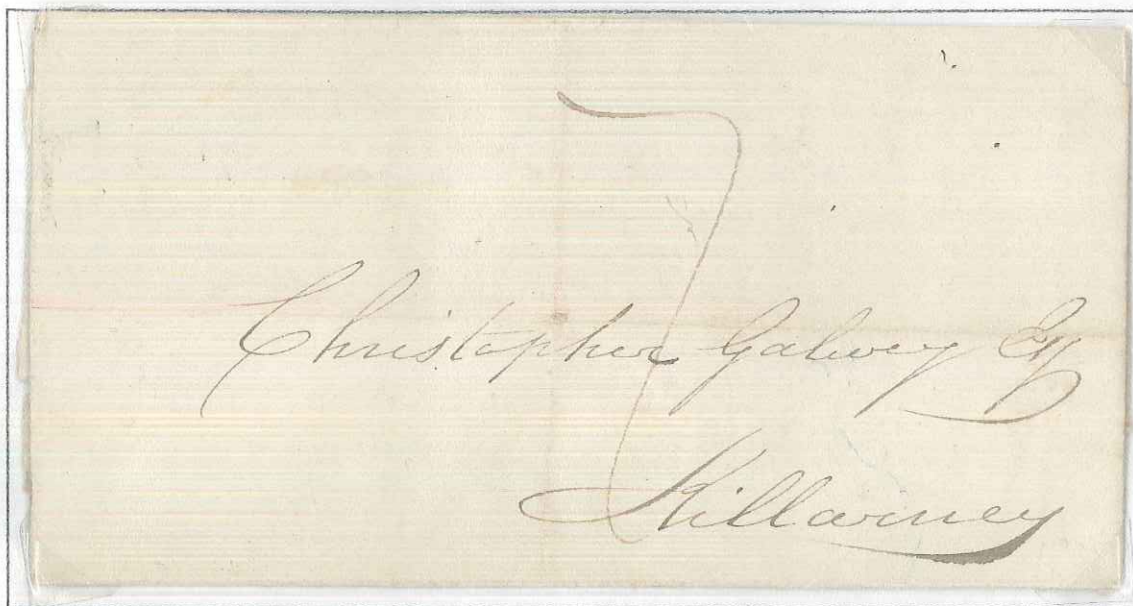 7
Christopher Galwey Esq
Killarney